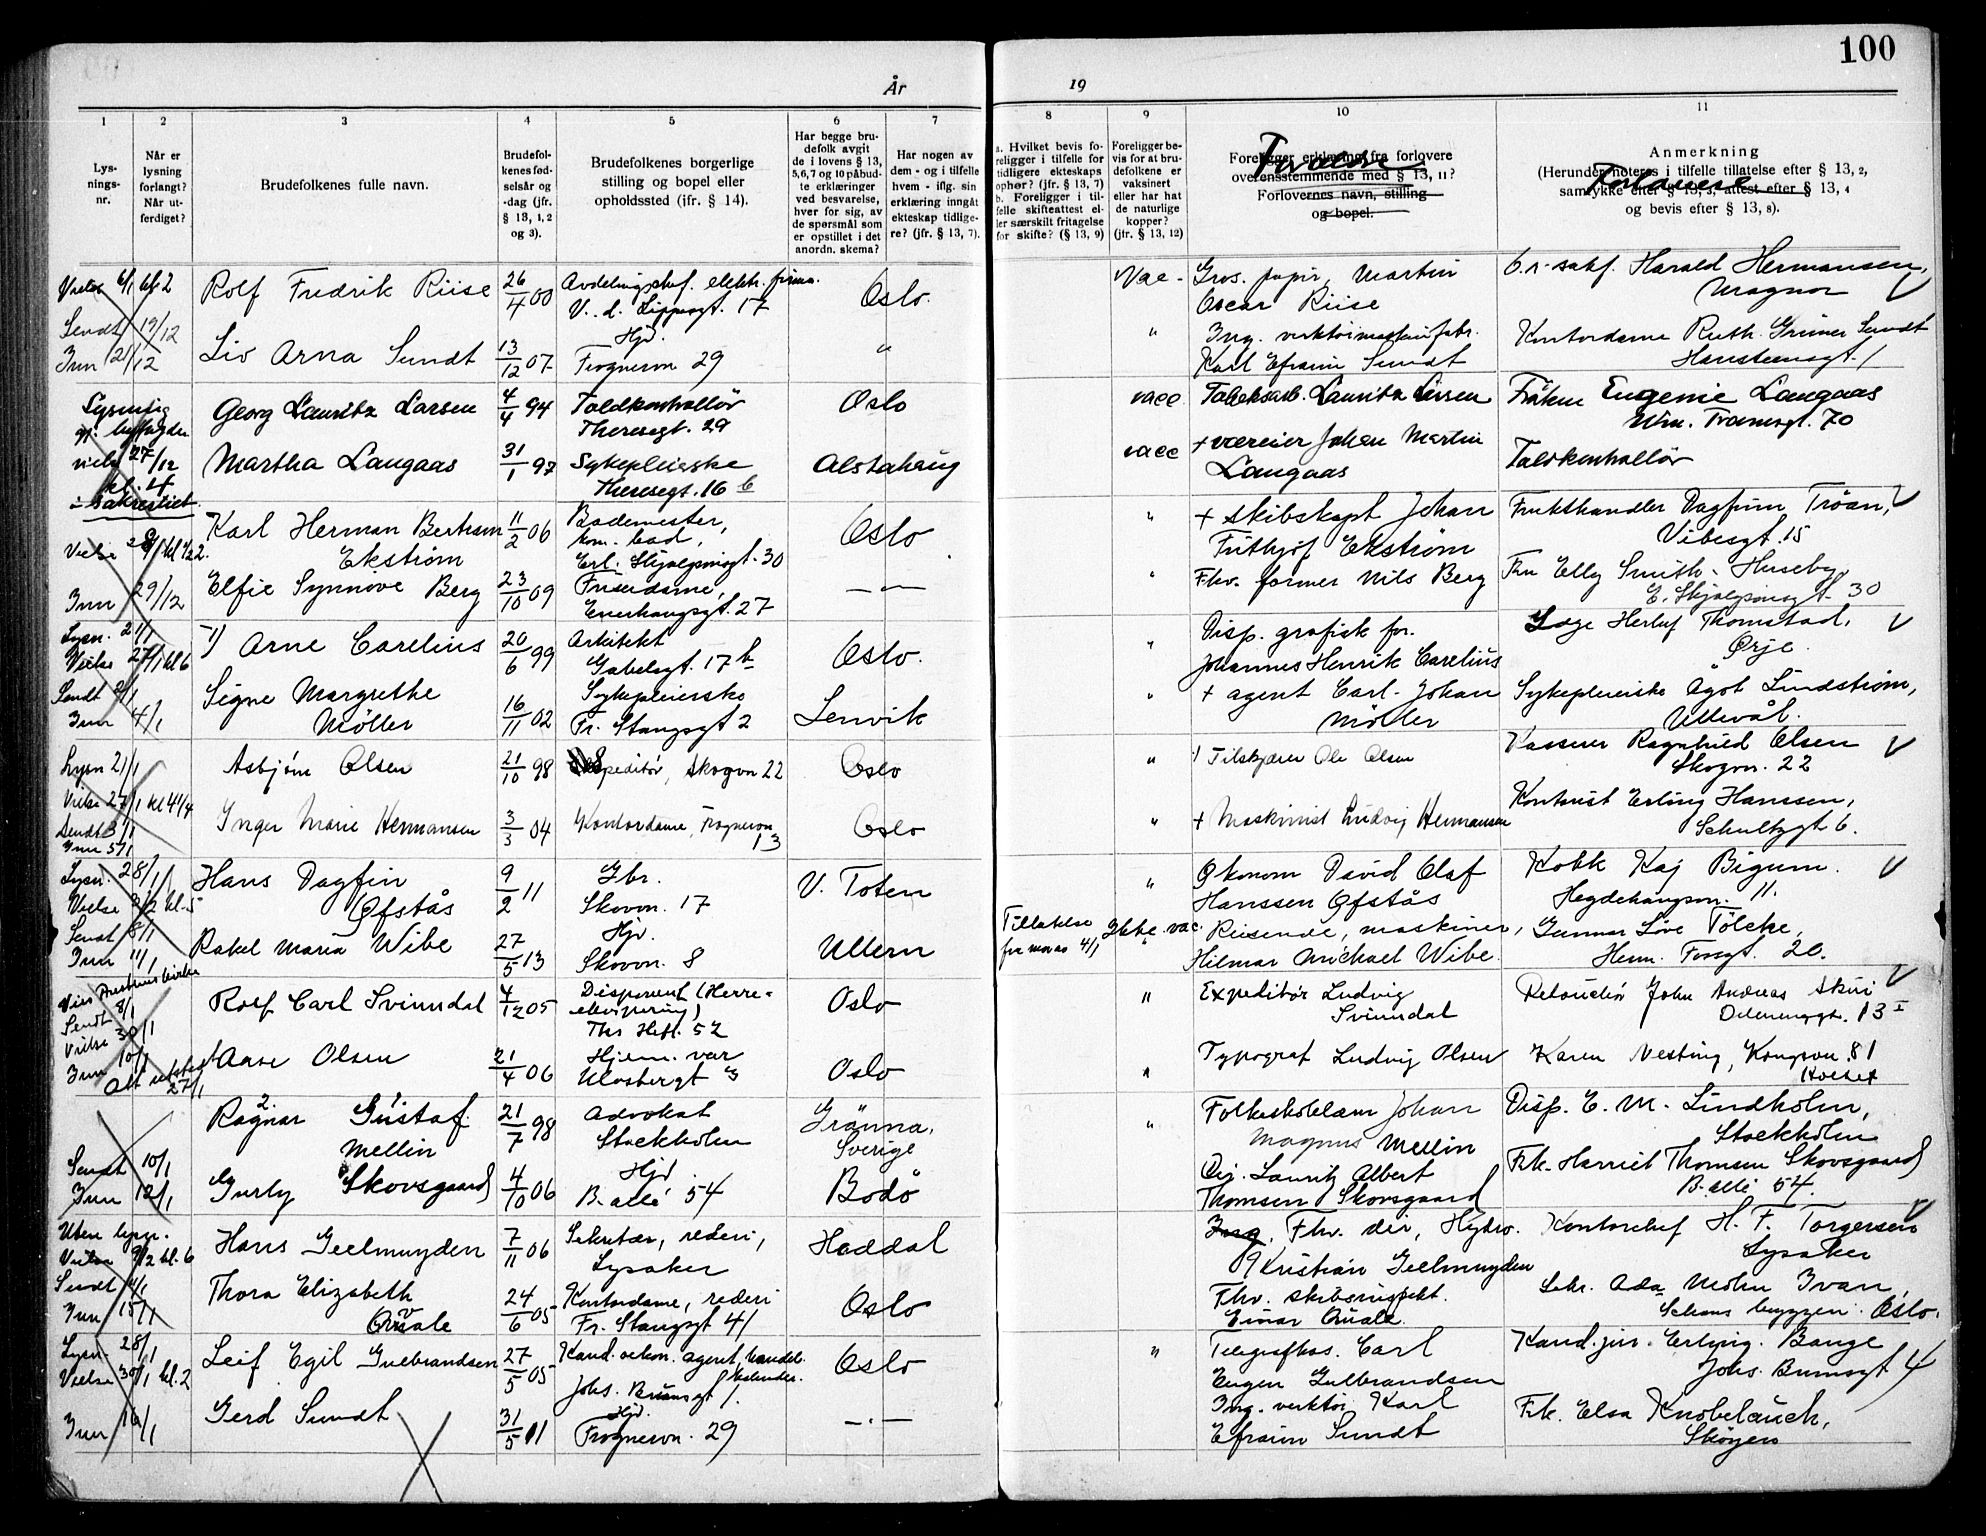 100
År 19
1 2 3 4 5 6 7 8 9 10 11
Lys-
nings-
nr.
Når er
lysning
forlangt?
Når ut-
ferdiget?
Brudefolkenes fulle navn.
Brudefol-
kenes fød-
selsår og
-dag (jfr.
§ 13, 1, 2
og 3).
Brudefolkenes borgerlige
stilling og bopel eller
opholdssted (jfr. § 14).
Har begge bru-
defolk avgit
de i lovens § 13,
5, 6, 7 og 10 påbud-
te erklæringer
ved besvarelse,
hver for sig, av
de spørsmål som
er opstillet i det
anordn. skema?
Har nogen av
dem - og i tilfelle
hvem - iflg. sin
erklæring inngått
ekteskap tidlige-
re? (jfr. § 13, 7).
a. Hvilket bevis fo-
religger i tilfelle for
tidligere ekteskaps
ophør? (jfr. § 13, 7)
b. Foreligger i til-
felle skifteattest el-
ler særskilt fritagelse
for skifte? (§ 13, 9)
Foreligger be-
vis for at bru-
defolkene er
vaksinert
eller har hat
de naturlige
kopper?
(jfr. § 13, 12)
Foreligger erklæring fra forlovere
overensstemmende med § 13, 11?
Forlovernes navn, stilling
og bopel.
Foreldre
Anmerkning
(Herunder noteres i tilfelle tillatelse efter § 13, 2,
samtykke efter § 13, 3, attest efter § 13, 4
og bevis efter § 13, 8).
Forlovere
Vielse 6/1 kl 2
Sendt 19/12
Inn 21/12
Rolf Fredrik Riise 26/4 00
Avdelingschef. elektr. firma.
V. d. Lippesgt. 17
Oslo.
Vac - Gros. papir, Martin
Oscar Riise
Harald Hermansen,
Magnor
Liv Arna Sundt 13/12 07
Hjd.
Frognervn 29
"
" Ing.
Karl Efraim Sundt
Kontordame Ruth Grüner Sundt
Hansteensgt. 1
vielse 27/12
kl. 4
i sakristiet.
Georg Lauritz Larsen 4/4 94
Toldkontrollør
Theresegt. 29
Oslo
vacc Lauritz Larsen
Frøken Eugenie Langaas
Wm. Tranesgt. 70
Martha Langaas 31/1 97
Sykepleierske
Theresegt. 16 b
Alstahaug
vacc + væreier Johan Martin
Langaas
Toldkontrollør
Inn 29/12
Karl Herman Bertram
Ekstrøm
11/2 06
Bademester,
kom. bad,
Erl. Skjalgsonsgt. 30
Oslo
" + skibskapt Johan
Frithjof Ekstrøm
Frukthandler Dagfinn Trøan,
Vibesgt. 15
Elfie Synnøve Berg 23/10 09
Frisørdame,
Eilert Sundtsgt. 27
— " —
" Fhv. farmer Nils Berg
Fru Elly Smith-Huseby
E. Skjalgsonsgt. 30
Lysn. 21/1
Vielse 27/1 kl 6
Sendt 2/1
Inn 4/1
1) Arne Carelius 20/6 99
Arkitekt
Gabelsgt. 17 b
Oslo.
" Disp. grafisk for.
Johannes Henrik Carelius
Læge Herluf Thomstad,
Ørje.
Signe Margrethe
Möller
16/11 02
Sykepleierske
Fr. Stangsgt 2
Lenvik
" + agent Carl-Johan
Möller
Sykepleierske Ågot Lindstrøm,
Ullevål.
Lysn 21/1
Vielse 27/1 kl 4 1/4
Sendt 3/1
Inn 5/1
Asbjørn Olsen 21/10 98
Ekspeditør, Skogvn 22
Oslo
" Tilskjærer Ole Olsen
Kasserer Ragnhild Olsen
Skogvn. 22
Inger Marie Hermansen 3/3 04
Kontordame, Frognervn
13
Oslo
" + Maskinist Ludvig Hermansen
Kontorist Erling Hanssen,
Schultzgt 6.
Lysn. 28/1
Vielse 3/2 kl. 5
Sendt 8/1
Inn 11/1
Hans Dagfin
Øfstås
9/2 11
Gbr.
Skovvn. 17
V. Toten
" Økonom David Olaf
Hanssen Øfstås
Kokk Kaj Bigum.
Hegdehaugsvn. 11.
Rakel Maria Wibe 27/5 13
Hjd.
Skovvn. 8
Ullern
Tillatelse
fra moras 4/1
Ikke vac.
Reisende, maskiner,
Hilmar Michael Wibe.
Gunnar Løve Tölcke,
Herm. Fossgt. 20.
Sendt 8/1
Vielse 30/1
Inn 10/1
Alt utsted
27/1
Rolf Carl Svinndal 4/12 05
Disponent (Herre-
ekvipering)
Ths Heft. 52
Oslo
" Expeditør Ludvig
Svinndal
Retouchør John Andreas Skui
13 I
Aase Olsen 21/4 06
Hjem. vær
Oslo
" Typograf Ludvig Olsen
Karen Nesting, Kongsvn. 81
Sendt 10/1
Inn 12/1
Ragnar Gustaf
Mellin
21/7 98
Advokat
Stockholm
Gränna,
Sverige
" Folkeskolelærer Johan
Magnus Mellin
Disp. E. M. Lindholm,
Stockholm
Gurly Skovsgaard 4/10 06
Hjd
B. allé 54
Bodø
Dir. Lauritz Albert
Thomsen Skovsgaard
Frk. Harriet Thomsen Skovsgaard
B. allé 54.
Uten lysn.
Vielse 9/2 kl. 6
Sendt 14/1
Inn 15/1
Hans Geelmuyden 7/11 06
Sekretær, rederi,
Lysaker
Haddal
Ing. Fhv. dir, Hydro.
Kristian Geelmuyden
Kontorchef H. F. Torgersen
Lysaker
Thora Elizabeth
Qvale
24/6 05
Kontordame, rederi
Fr. Stangsgt 41
Oslo
Fhv. skibsinspekt.
Einar Qvale
Sekr. Ada Mohn Ivan,
Oslo.
Lysn. 28/1
Vielse 30/1 kl. 2
Inn 16/1
Leif Egil Gulbrandsen 27/5 05
Kand. oekon. agent, handels-
kalender.
Johs. Brunsgt 1.
Oslo
" Telegrafkas. Carl
Eugen Gulbrandsen
Kand. jur. Erling. Bange
Johs. Brunsgt 4
Gerd Sundt 31/5 11
Hjd.
Frognervn. 29
— " —
Ing. verktøi Karl
Efraim Sundt
Frk. Elsa Knobelauch,
Skøyen